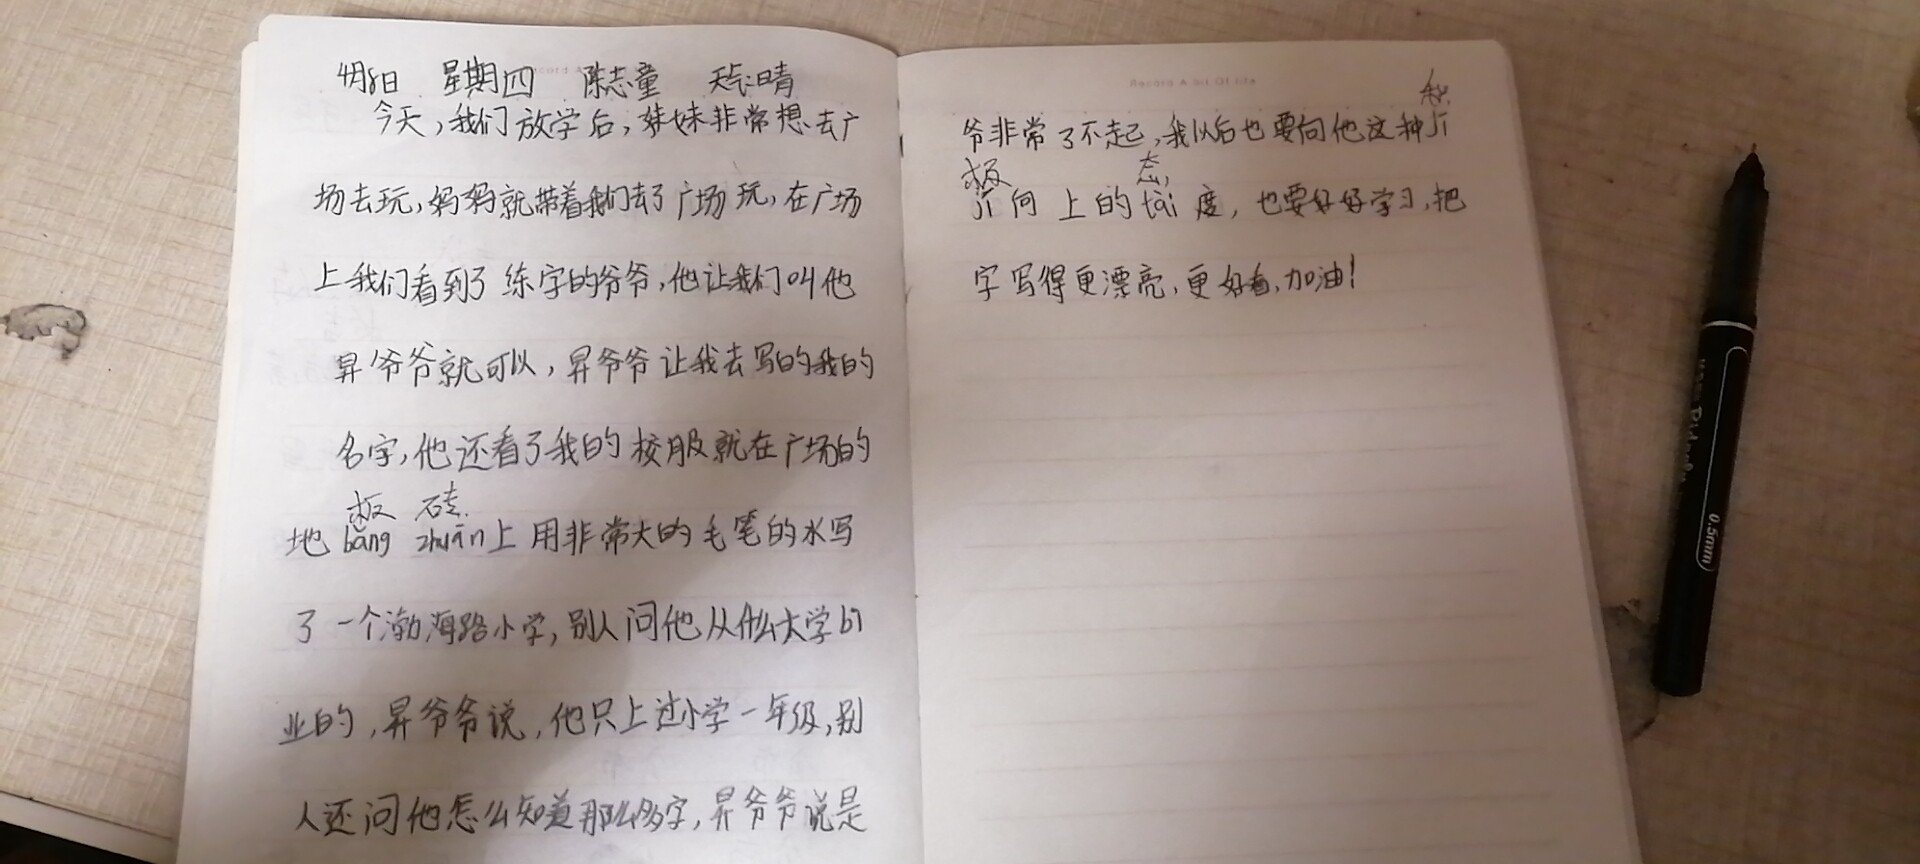 4月8日 星期四 陈志童 天气:晴
今天,我们放学后,妹妹非常想去广
场去玩,妈妈就带着我们去了广场玩,在广场
上我们看到了练字的爷爷,他让我们叫他
昇爷爷就可以,昇爷爷让我去写的我的
名字,他还看了我的校服就在广场的
板 砖
地bǎng zhuān上用非常大的毛笔的水写
了一个渤海路小学,别人问他从什么大学bì
业的,昇爷爷说,他只上过小学一年级,别
人还问他怎么知道那么多字,昇爷爷说是
Record A bit Of Life
积
爷非常了不起,我以后也要向他这种jī
极 态
jí向上的tài度,也要好好学习,把
字写得更漂亮,更好看,加油!
0.5mm